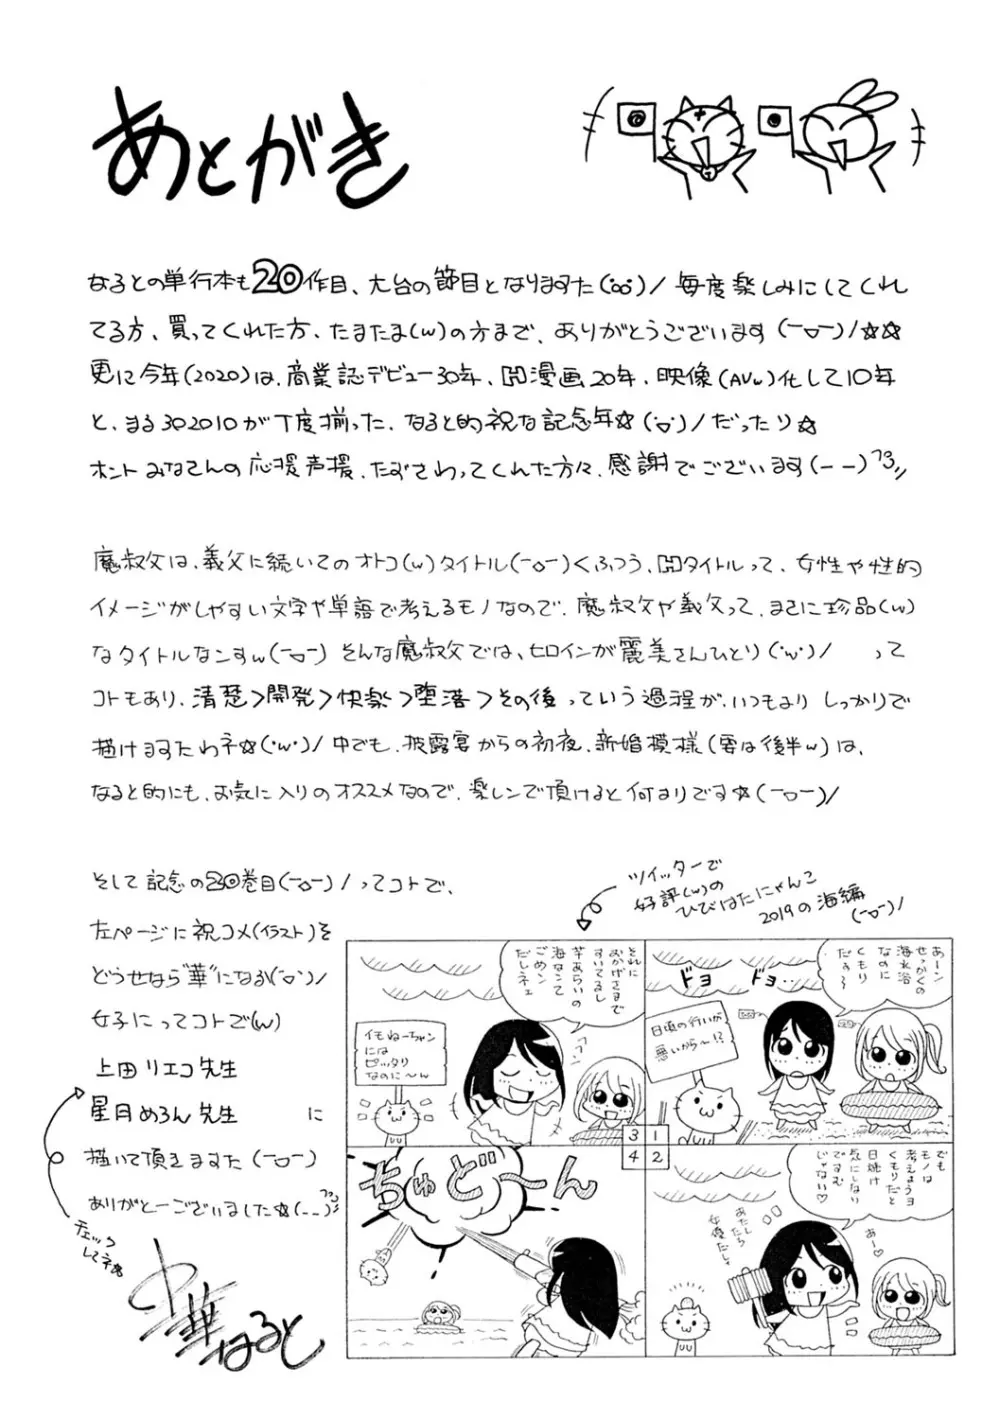 あとがき
なるとの単行本も20作目、大台の節目となりますた(°ω°)/ 毎度楽しみにしてくれ
てる方、買ってくれた方、たまたま(w)の方まで、ありがとうございます(￣▽￣)/☆☆
更に今年(2020)は、商業誌デビュー30年、H漫画20年、映像(AVw)化して10年
と、まる302010が丁度揃った、なると的祝な記念年☆(°▽°)/だったり☆
ホントみなさんの応援声援、たずさわってくれた方々、感謝でございます(－－)ﾌｶ//
魔叔父は、義父に続いてのオトコ(w)タイトル(￣▽￣)くふつう、Hタイトルって、女性や性的
イメージがしやすい文字や単語で考えるモノなので、魔叔父や義父って、まさに珍品(w)
なタイトルなンすw(￣▽￣) そんな魔叔父では、ヒロインが麗美さんひとり(・w・)/ って
コトもあり、清楚>開発>快楽>堕落>その後 っていう過程が、いつもより しっかりで
描けますたわネ☆(・w・)/ 中でも、披露宴からの初夜、新婚模様(要は後半w)は、
なると的にも、お気に入りのオススメなので、楽しンで頂けると何よりです☆(￣▽￣)/
そして記念の20巻目(￣▽￣)/ってコトで、
左ページに祝コメ(イラスト)を
どうせなら"華"になる(°▽°)/
女子にってコトで(w)
上田リエコ先生
星月めろん先生 に
描いて頂きますた(￣▽￣)
ありがとーございました☆(－－)ﾌｶ
チェック
してネ☆
中華なると
ツイッターで
好評(w)の
ひびはたにゃんこ
2019の海編
(￣▽￣)/
あーン
せっかくの
海水浴
なのに
くもり
だぁ〜
ドヨ ドヨ‥
日頃の行いが
悪いから〜!?
でも
モノは
考えようヨ
くもりだと
日焼け
気にしなり
ですむ
じゃない♡
あー♡
あたしら
女優だし♪
それに
おかげさまで
すいてるし
芋あらいの
海なンて
ごめン
だしネェ
イモねーちゃン
には
ピッタリ
なのに〜ん
ちゅど〜ん
3 1
4 2